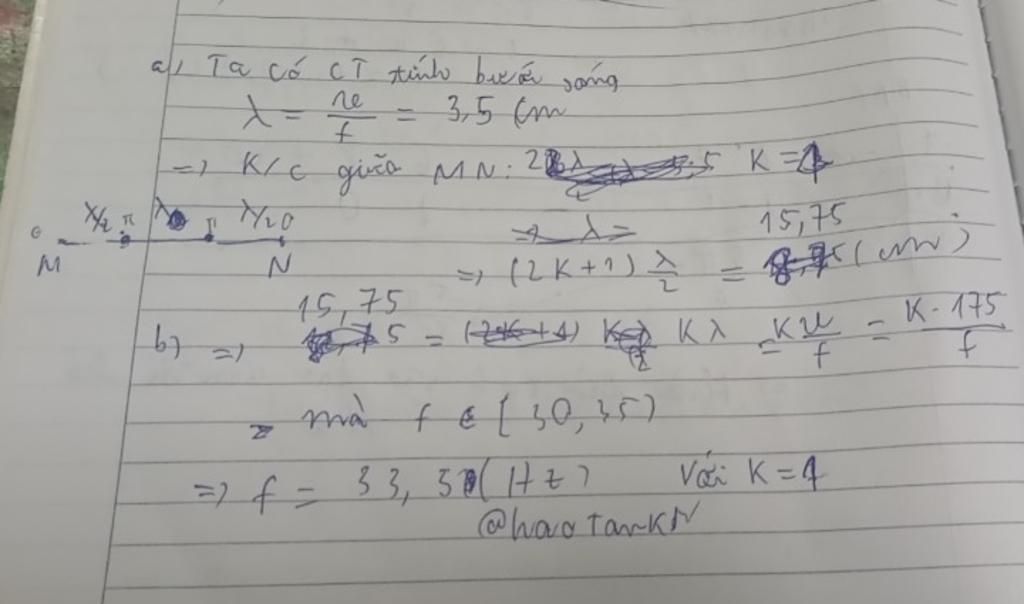 a) Ta có CT tính bước sóng
λ = v/f = 3,5 cm
=> K/c giữa MN: K = 4
λ/2 π λ π λ/2 0
M N
=> λ =
=> (2K+1) λ/2 = 15,75 (cm)
b) => 15,75 = Kλ = Kv/f = K.175/f
mà f ∈ [30,35)
=> f = 33,3 (Hz) Với K = 4
@haoTanKN